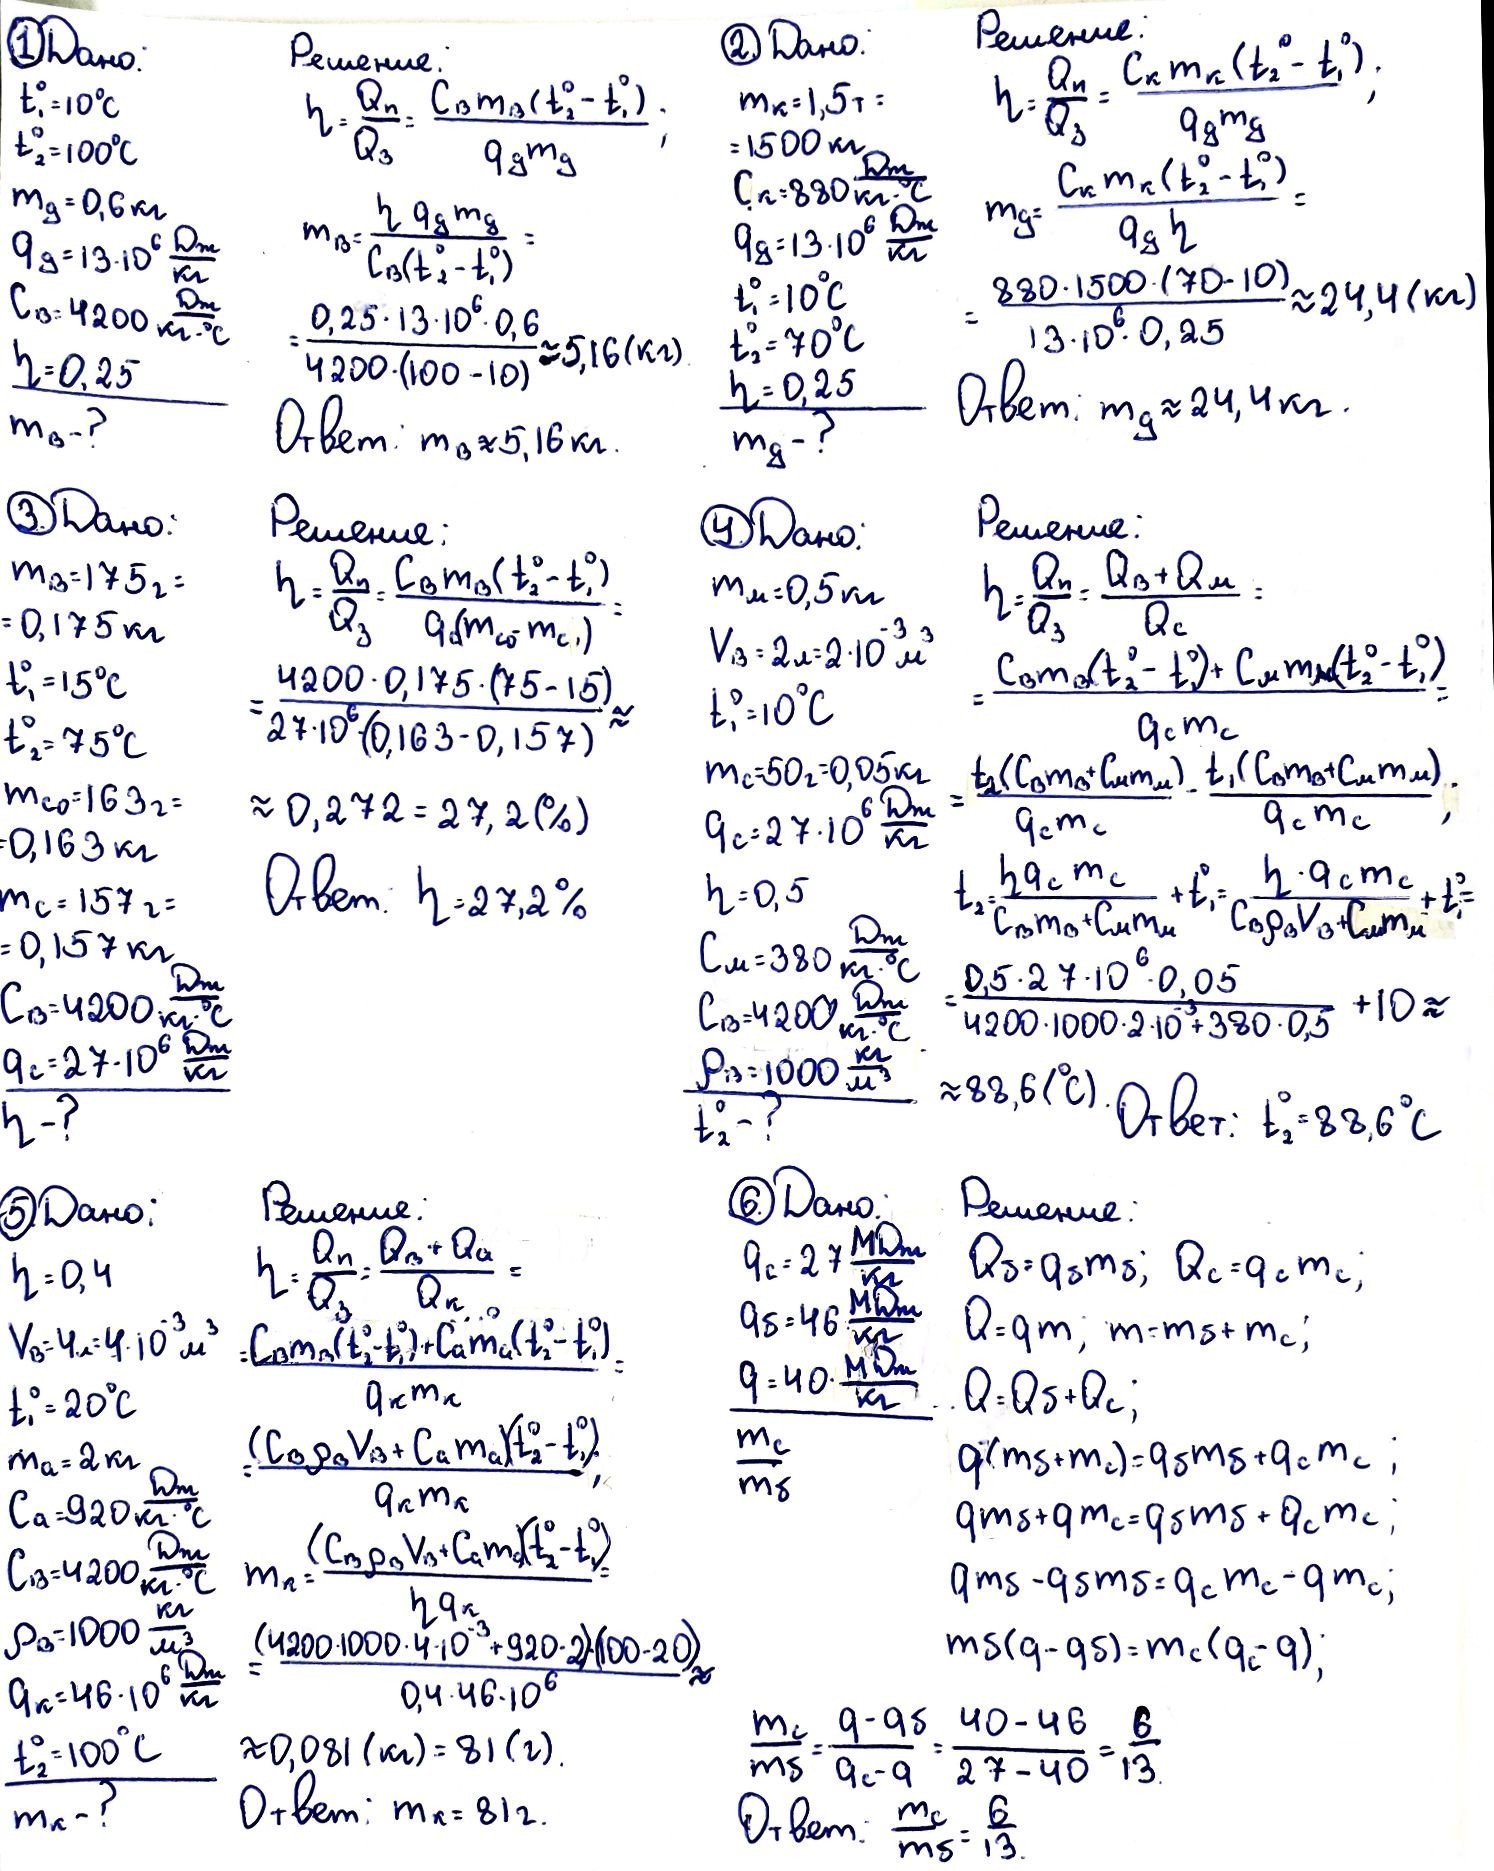 ① Дано:
t₁°=10°C
t₂°=100°C
m_д=0,6кг
q_д=13·10⁶ Дж/кг
C_в=4200 Дж/кг·°C
η=0,25
m_в-?
Решение:
η=Qп/Qз=C_в m_в(t₂°-t₁°)/q_д m_д;
m_в=η q_д m_д/C_в(t₂°-t₁°)=
=0,25·13·10⁶·0,6/4200·(100-10)≈5,16(кг)
Ответ: m_в≈5,16кг.
② Дано:
m_к=1,5т=
=1500кг
C_к=880 Дж/кг·°C
q_д=13·10⁶ Дж/кг
t₁°=10°C
t₂°=70°C
η=0,25
m_д-?
Решение:
η=Qп/Qз=C_к m_к(t₂°-t₁°)/q_д m_д;
m_д=C_к m_к(t₂°-t₁°)/q_д η=
=880·1500·(70-10)/13·10⁶·0,25≈24,4(кг)
Ответ: m_д≈24,4кг.
③ Дано:
m_в=175г=
=0,175кг
t₁°=15°C
t₂°=75°C
m_со=163г=
=0,163кг
m_с=157г=
=0,157кг
C_в=4200 Дж/кг·°C
q_с=27·10⁶ Дж/кг
η-?
Решение:
η=Qп/Qз=C_в m_в(t₂°-t₁°)/q_с(m_со-m_с)=
=4200·0,175·(75-15)/27·10⁶·(0,163-0,157)≈
≈0,272=27,2(%)
Ответ: η=27,2%
④ Дано:
m_м=0,5кг
V_в=2л=2·10⁻³м³
t₁°=10°C
m_с=50г=0,05кг
q_с=27·10⁶ Дж/кг
η=0,5
C_м=380 Дж/кг·°C
C_в=4200 Дж/кг·°C
ρ_в=1000 кг/м³
t₂°-?
Решение:
η=Qп/Qз=Q_в+Q_м/Q_с=
=C_в m_в(t₂°-t₁°)+C_м m_м(t₂°-t₁°)/q_с m_с=
=t₂(C_в m_в+C_м m_м)/q_с m_с-t₁(C_в m_в+C_м m_м)/q_с m_с;
t₂=η q_с m_с/C_в m_в+C_м m_м+t₁°=η·q_с m_с/C_в ρ_в V_в+C_м m_м+t₁°=
=0,5·27·10⁶·0,05/4200·1000·2·10⁻³+380·0,5+10≈
≈88,6(°C). Ответ: t₂°=88,6°C
⑤ Дано:
η=0,4
V_в=4л=4·10⁻³м³
t₁°=20°C
m_а=2кг
C_а=920 Дж/кг·°C
C_в=4200 Дж/кг·°C
ρ_в=1000 кг/м³
q_к=46·10⁶ Дж/кг
t₂°=100°C
m_к-?
Решение:
η=Qп/Qз=Q_в+Q_а/Q_к=
=C_в m_в(t₂°-t₁°)+C_а m_а(t₂°-t₁°)/q_к m_к=
=(C_в ρ_в V_в+C_а m_а)(t₂°-t₁°)/q_к m_к;
m_к=(C_в ρ_в V_в+C_а m_а)(t₂°-t₁°)/η q_к=
=(4200·1000·4·10⁻³+920·2)·(100-20)/0,4·46·10⁶≈
≈0,081(кг)=81(г).
Ответ: m_к=81г.
⑥ Дано:
q_с=27 МДж/кг
q_б=46 МДж/кг
q=40· МДж/кг
m_с/m_б
Решение:
Q_б=q_б m_б; Q_с=q_с m_с;
Q=qm; m=m_б+m_с;
Q=Q_б+Q_с;
q(m_б+m_с)=q_б m_б+q_с m_с;
qm_б+qm_с=q_б m_б+q_с m_с;
qm_б-q_б m_б=q_с m_с-qm_с;
m_б(q-q_б)=m_с(q_с-q);
m_с/m_б=q-q_б/q_с-q=40-46/27-40=6/13.
Ответ: m_с/m_б=6/13.